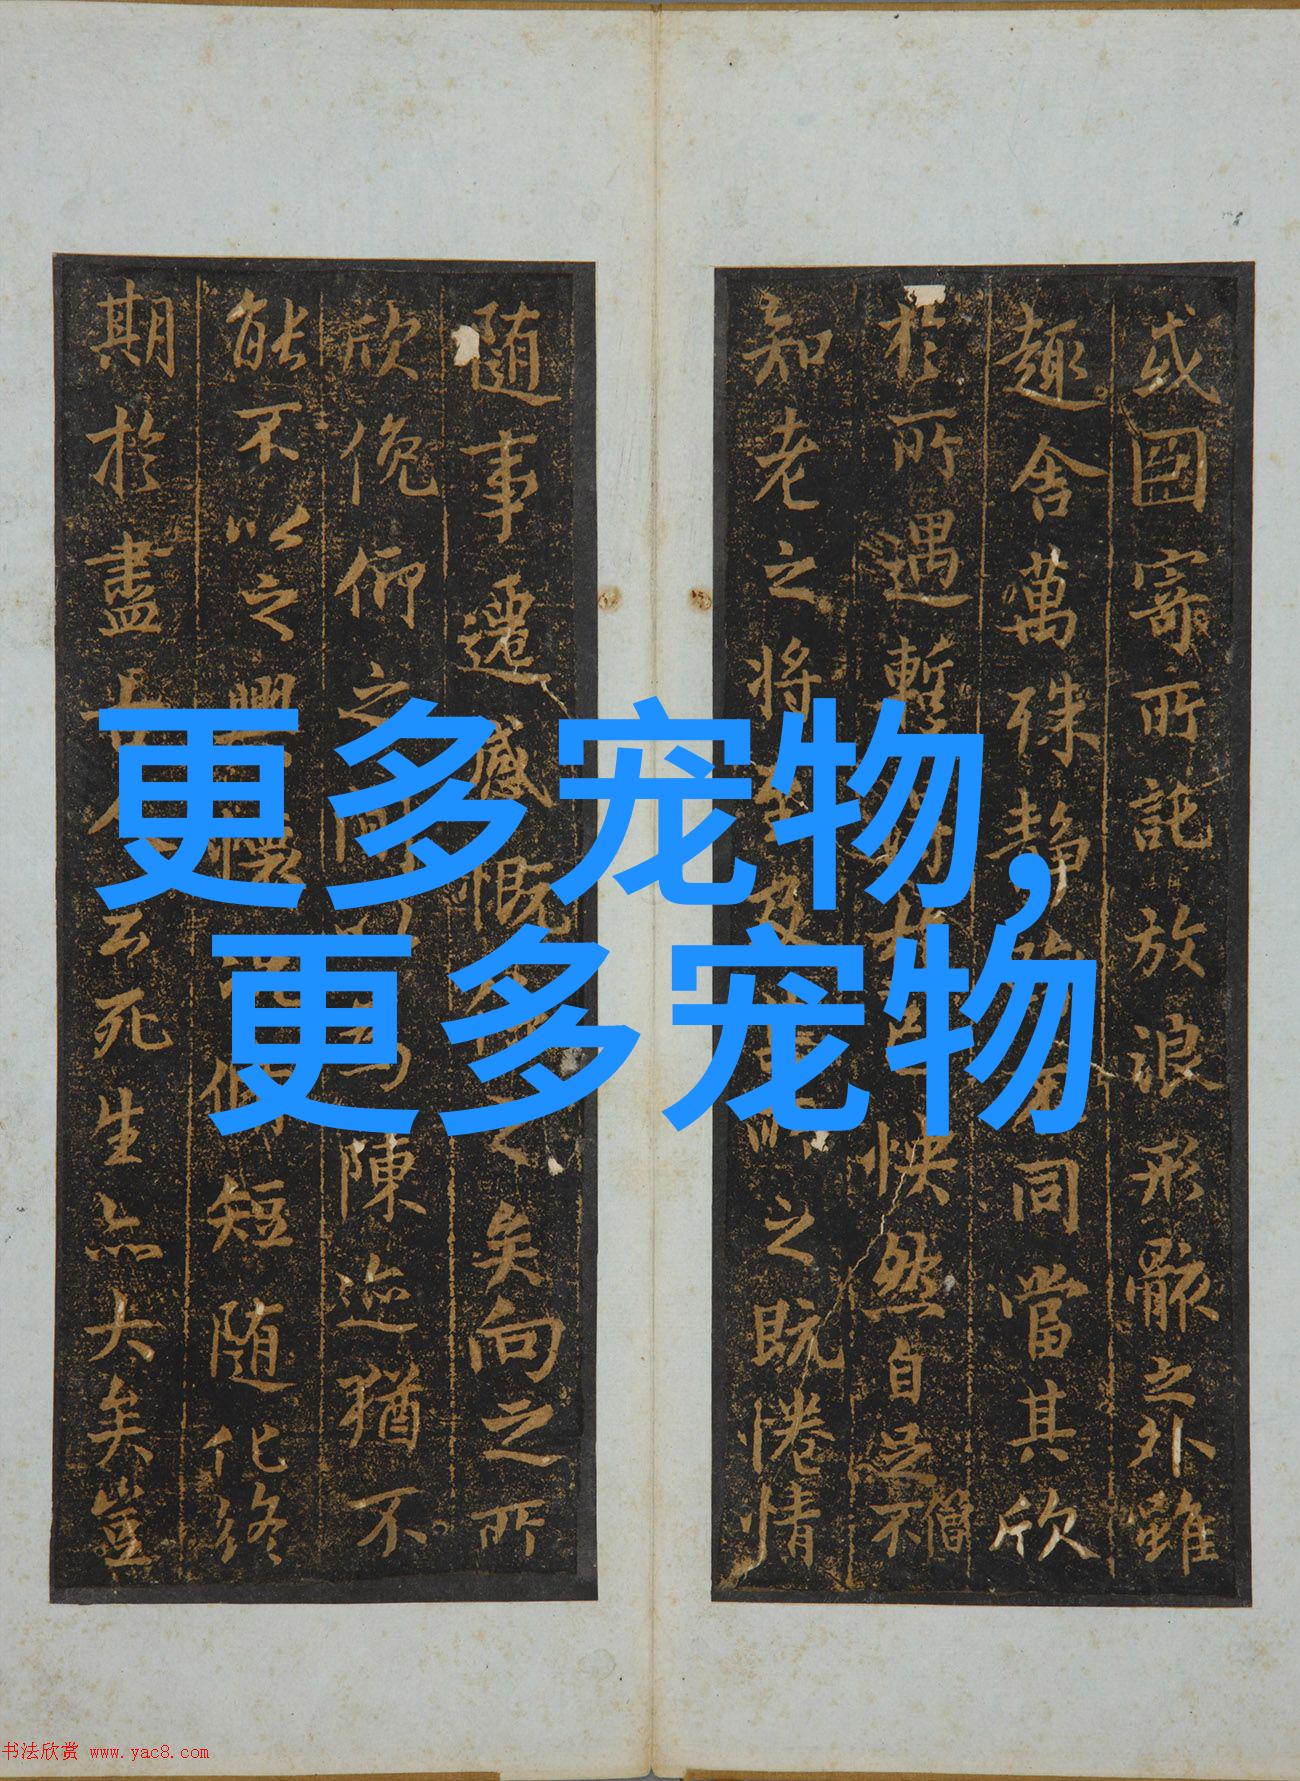 更多宠物,
更多宠物
或因寄所託放浪形骸之外雖
趣舍萬殊静同當其欣
於所遇暫怏然自足不
僧
知老之將之既惓情
隨事遷感慨之矣向之所
欣俛仰之陳迹猶不
能不以之興懷短隨化終
期於盡云死生亦大矣豈
书法欣赏 www.yac8.com